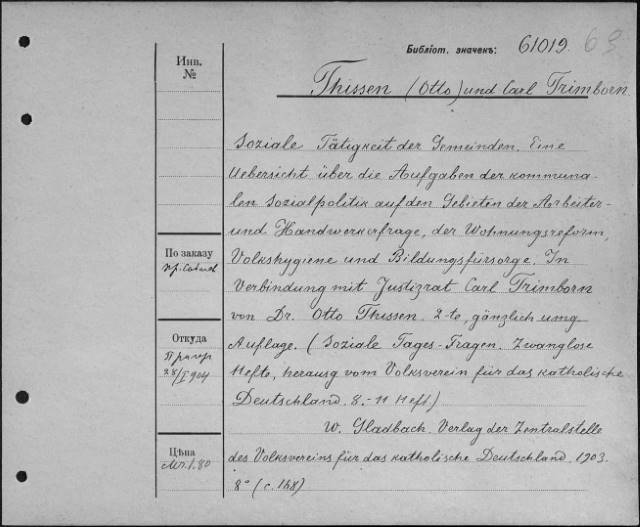 Библіот. значекъ: 61019. 63
Инв.
№
Thissen (Otto) und Carl Trimborn.
Soziale Tätigkeit der Gemeinden. Eine
Uebersicht über die Aufgaben der kommuna-
len Sozialpolitik auf den Gebieten der Arbeiter-
und Handwerkerfrage, der Wohnungsreform,
Volkshygiene und Bildungsfürsorge. In
Verbindung mit Justizrat Carl Trimborn
von Dr. Otto Thissen. 2-te, gänzlich umg.
Auflage. (Soziale Tages-Fragen. Zwanglose
Hefte, herausg vom Volksverein für das katholische
Deutschland. 8.-11 Heft.)
M. Gladbach. Verlag der Zentralstelle
des Volksvereins für das katholische Deutschland. 1903.
8° (с. 148)
По заказу
Откуда
28/I 904
Цѣна
Mr. 1.80